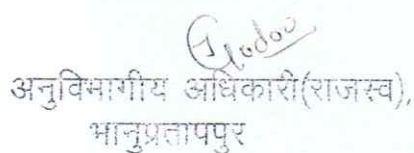 अनुविभागीय अधिकारी(राजस्व),
भानुप्रतापपुर